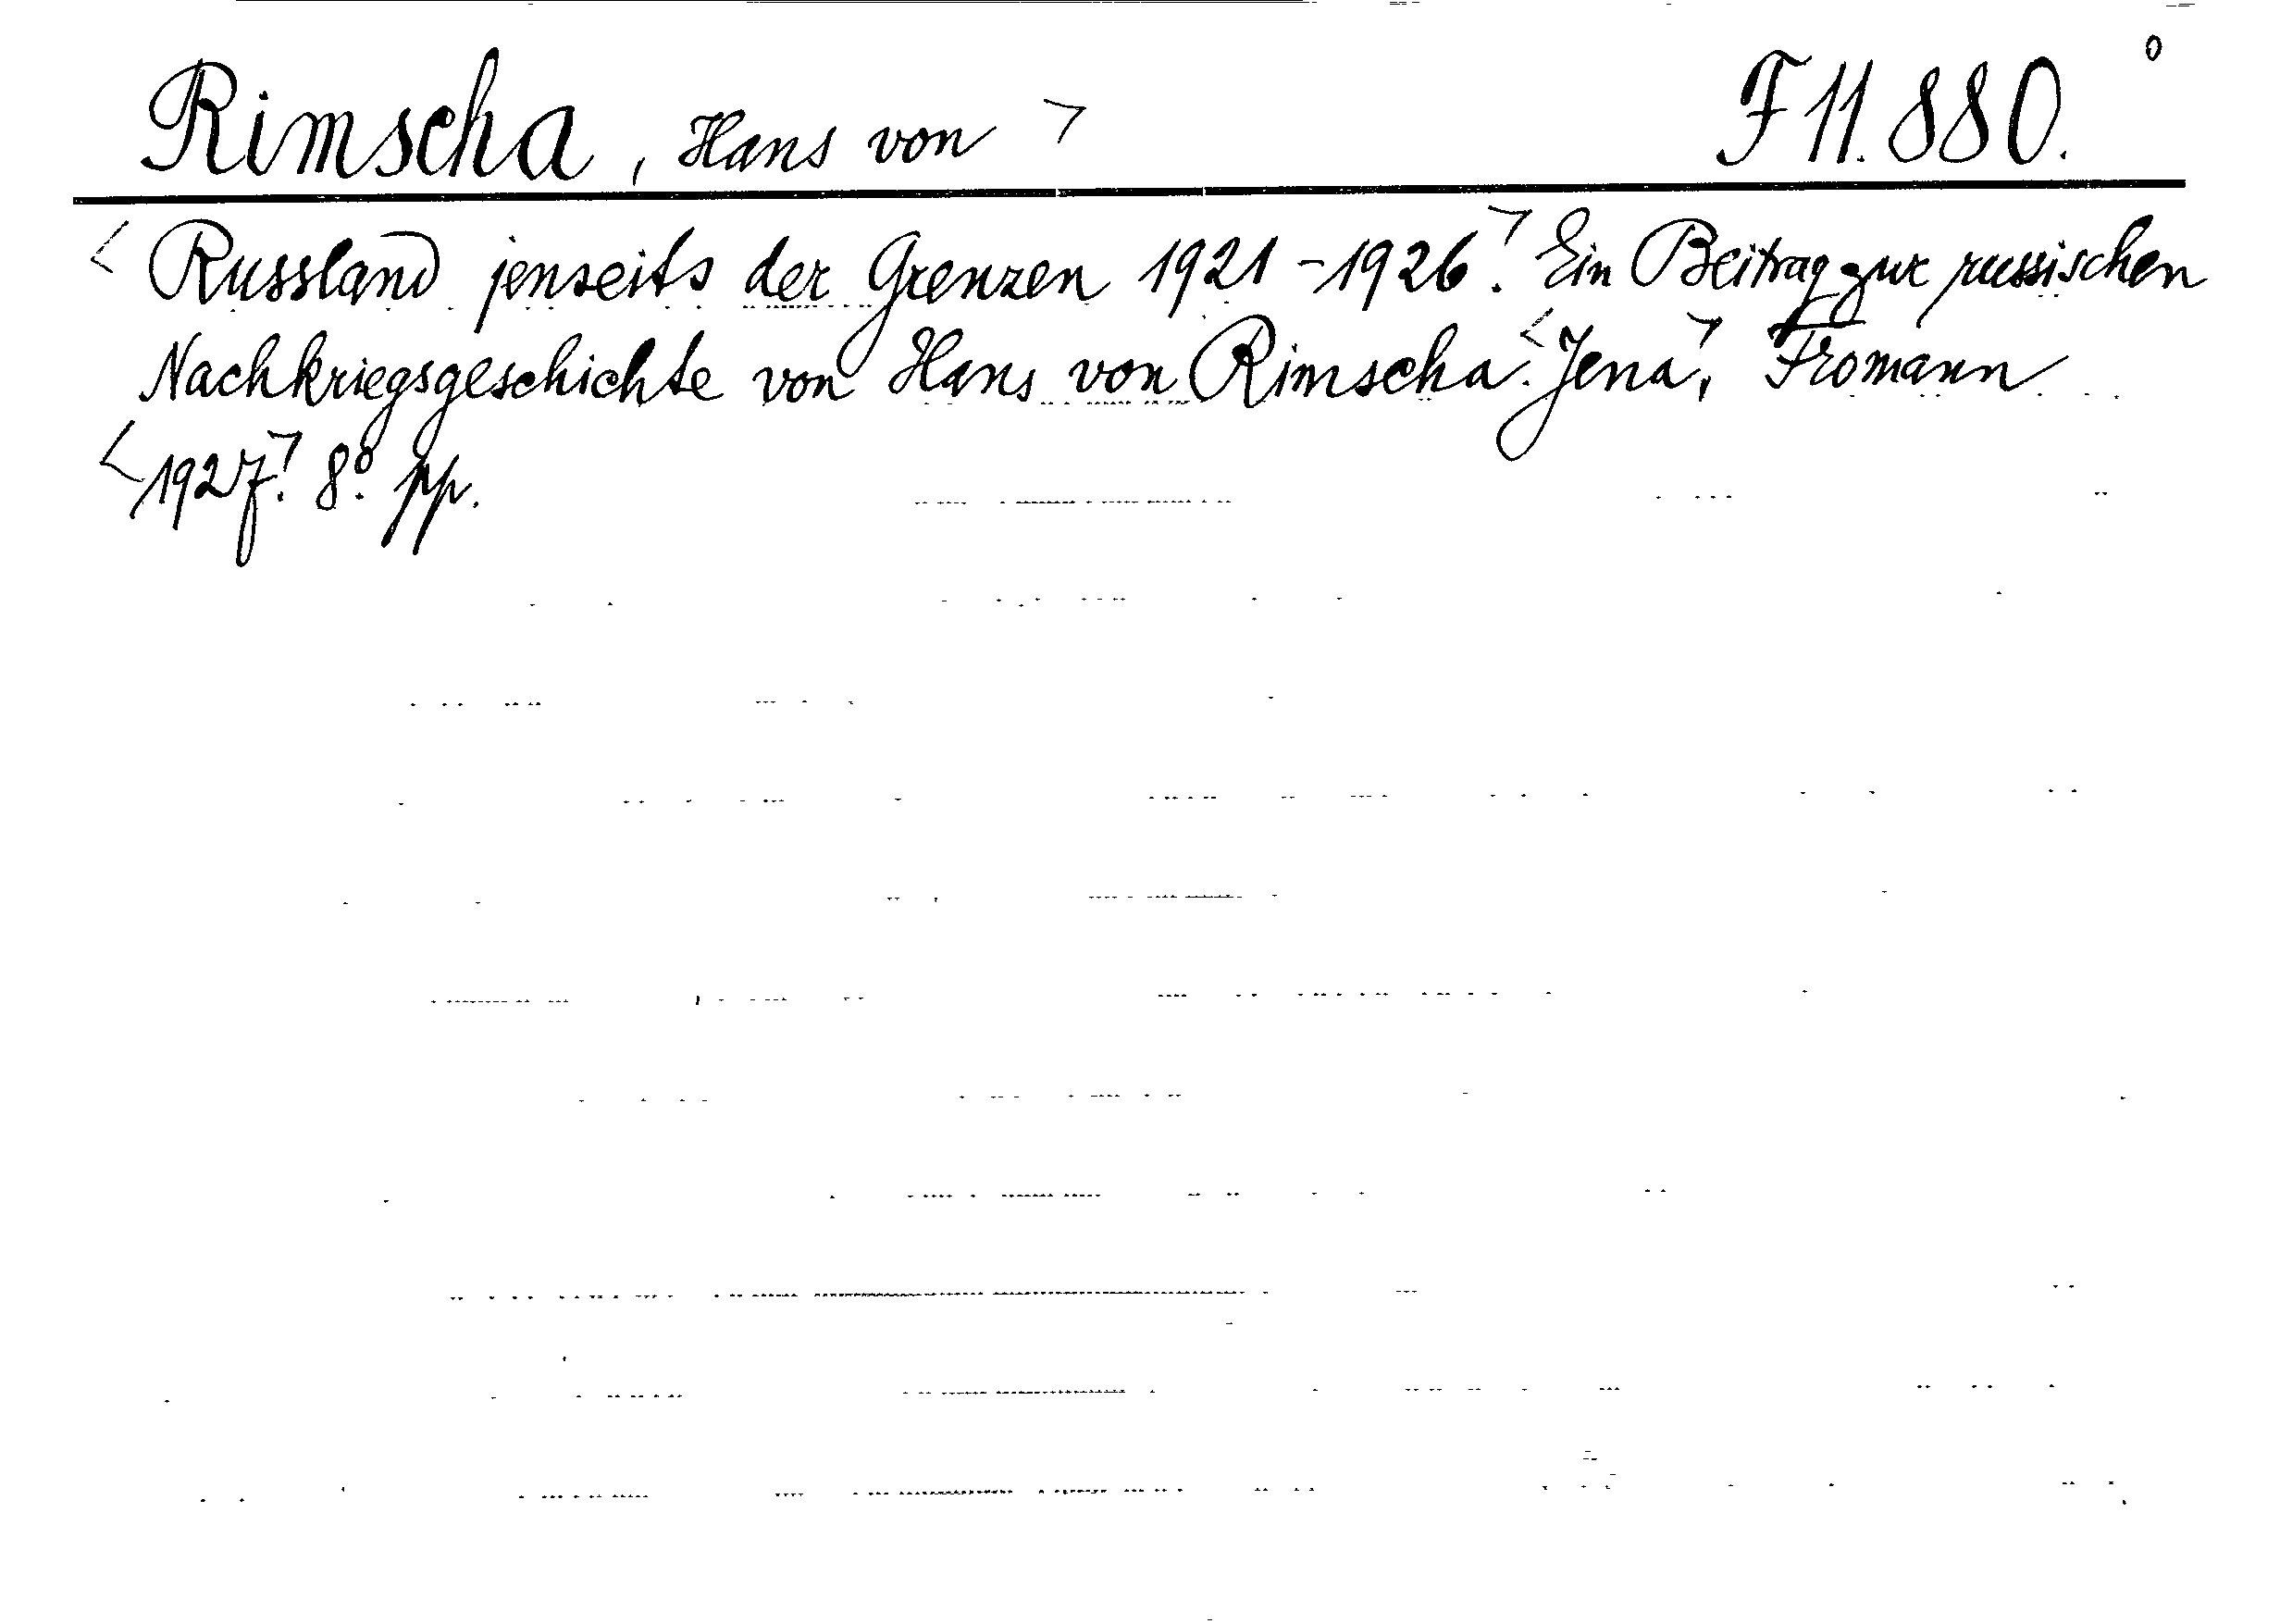 Rimscha, Hans von ㄱ F 11.880.
< Russland jenseits der Grenzen 1921-1926.ㄱ Ein Beitrag zur russischen
Nachkriegsgeschichte von Hans von Rimscha. <Jenaㄱ, Fromann
<1927.ㄱ 8º. pp.